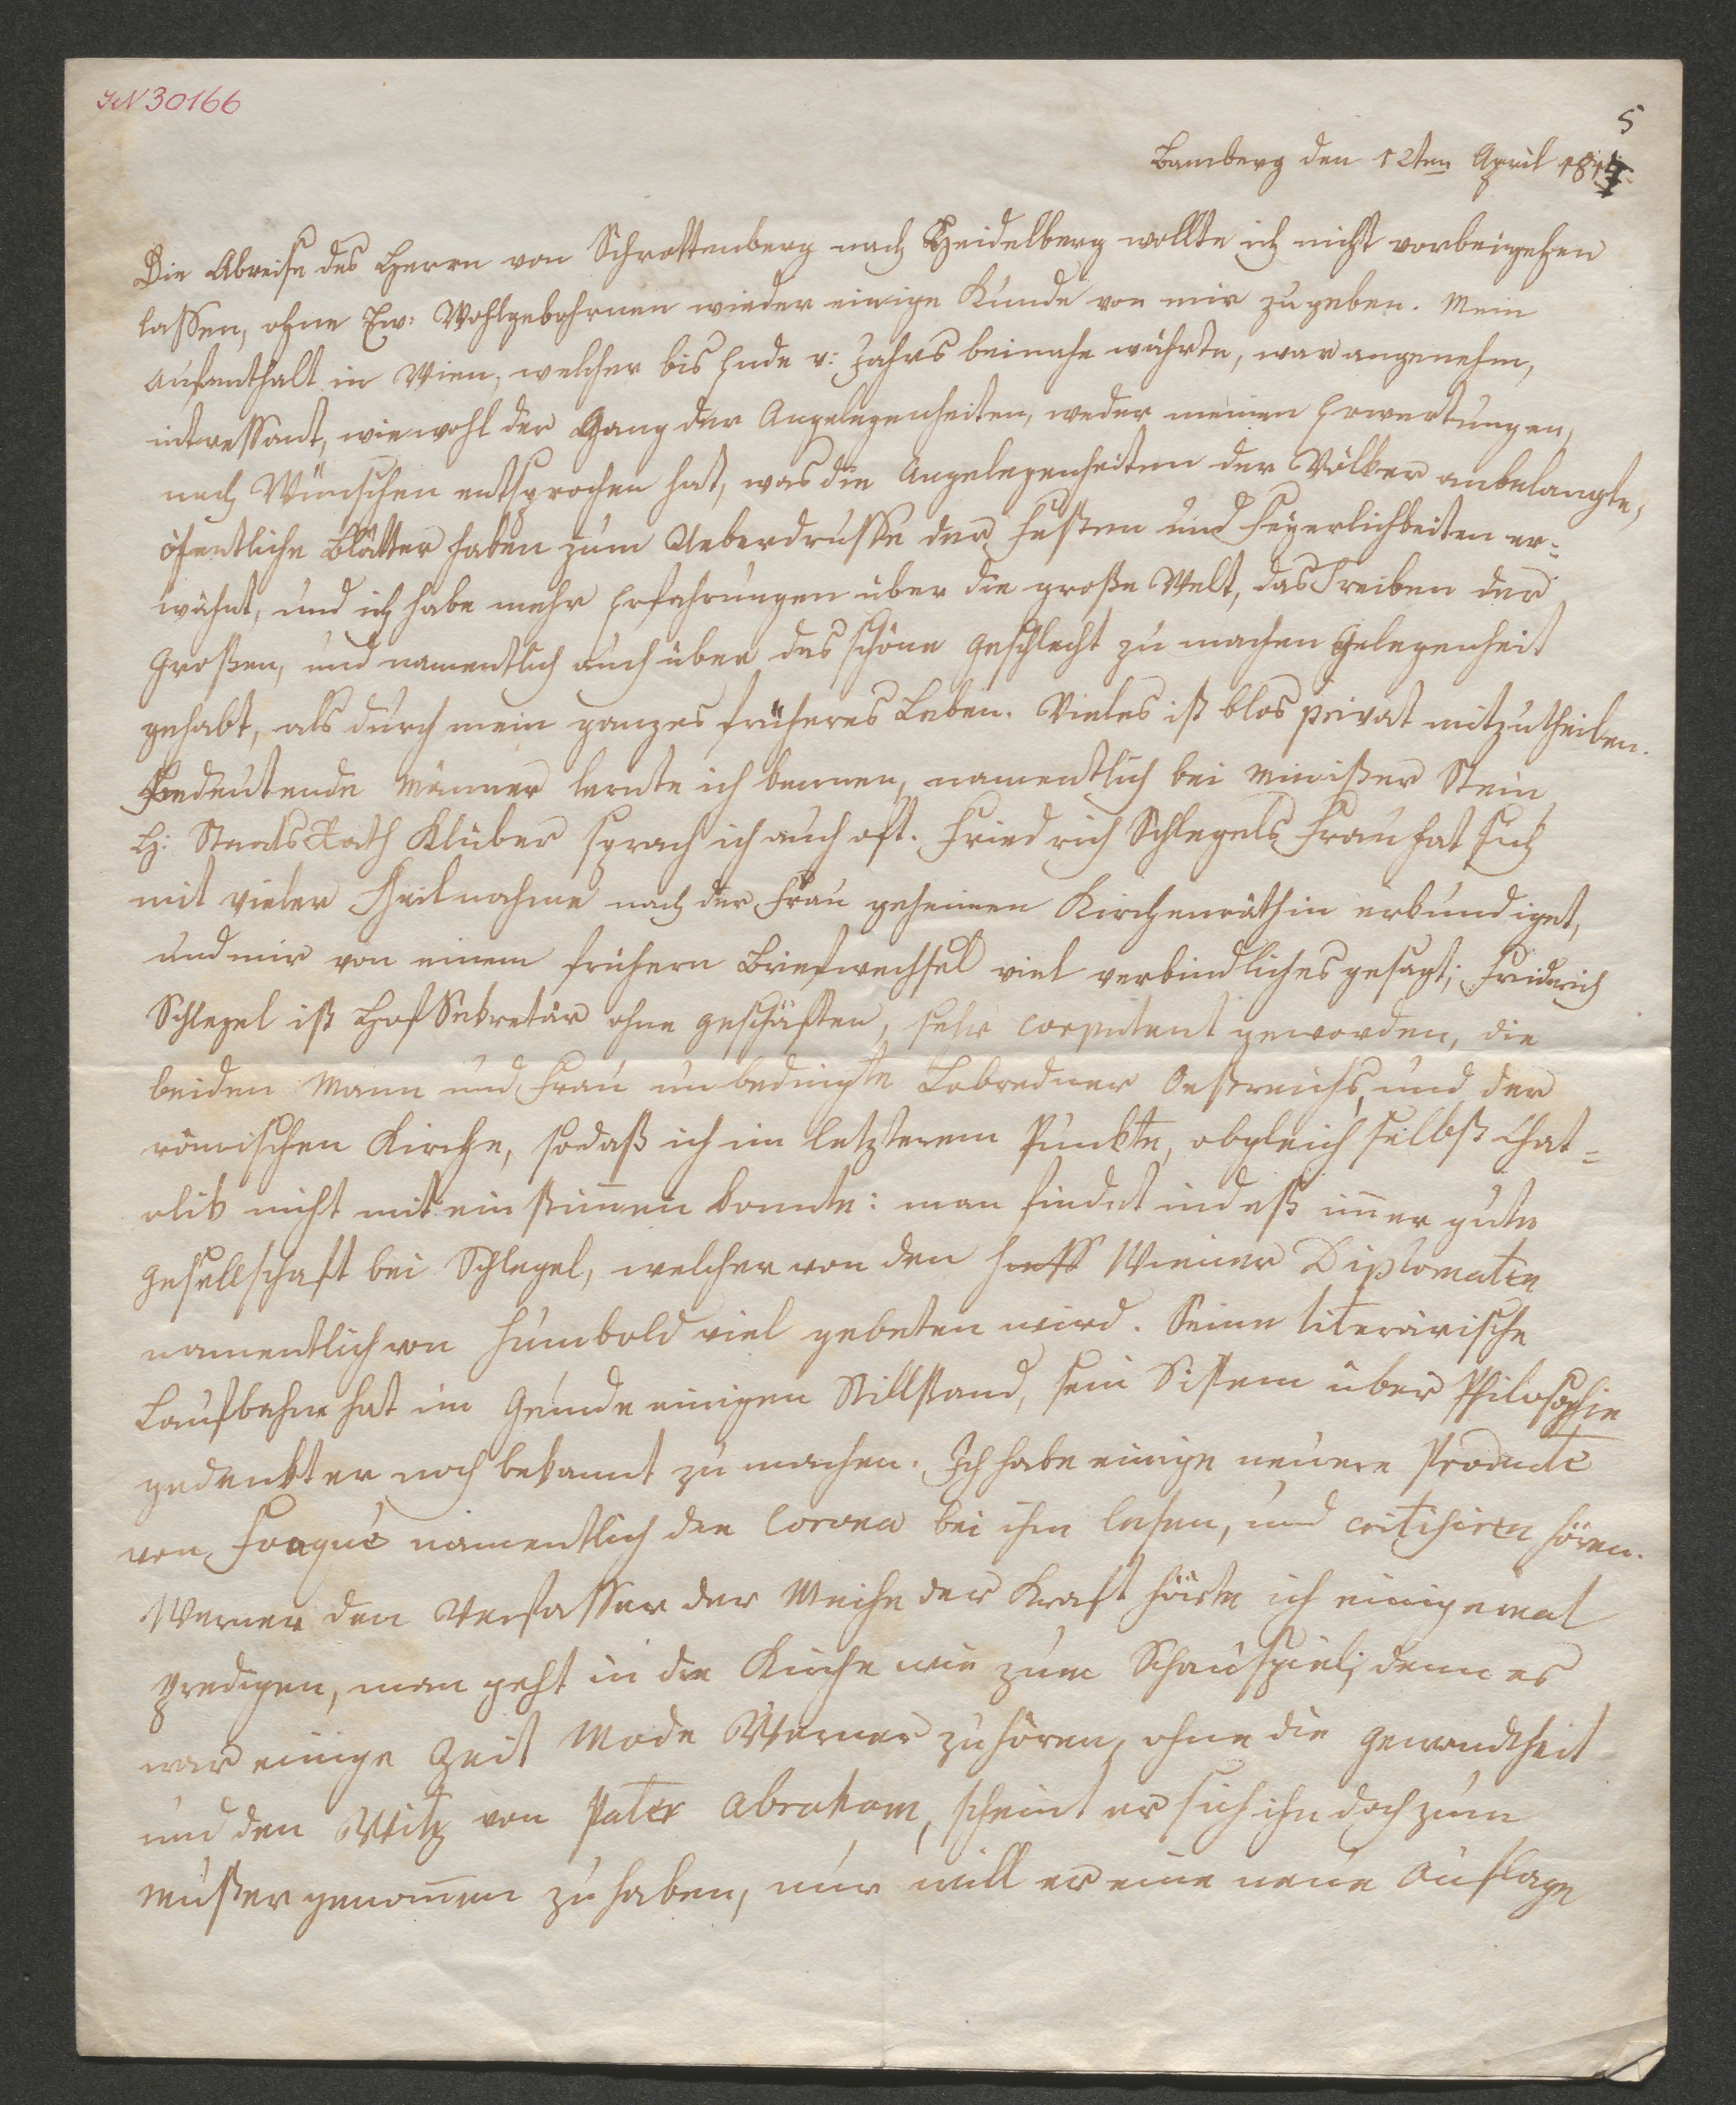 IN 30166
5
Bamberg den 12ten April 181
Die Abreise des Herrn von Schrottenberg nach Heidelberg wollte ich nicht vorbeigehen
lassen, ohne Ew: Wohlgebohrnen wieder einige Kunde von mir zu geben. Mein
Aufenthalt in Wien, welcher bis Ende v: Jahrs beinahe währte, war angenehm,
intressant, wiewohl der Gang der Angelegenheiten, weder meinen Erwartungen,
noch Wünschen entsprochen hat, was die Angelegenheiten der Völker anbelangte,
öfentliche Blätter haben zum Ueberdrusse der Festen und Feyerlichkeiten er=
wähnt, und ich habe mehr Erfahrungen über die große Welt, das Treiben der
Großen, und namentlich auch über das schöne Geschlecht zu machen Gelegenheit
gehabt, als durch mein ganzes früheres Leben. Vieles ist blos privat mitzutheilen.
Bedeutende Männer lernte ich kennen, namentlich bei Minister Stein
H: StaatsRath Klüber sprach ich auch oft. Friedrich Schlegels Frau hat sich
mit vieler Theilnahme nach der Frau geheimen Kirchenräthin erkundiget,
und mir von einem frühern Briefwechsel viel verbindliches gesagt; Friderich
Schlegel ist HofSekretär ohne Geschäften, sehr corpulent geworden, die
beiden Mann und Frau unbedingte Lobredner Oestreichs, und der
römischen Kirche, sodaß ich im letzterem Punkte, obgleich selbst Chat=
olik nicht mit einstimmen konnte: man findet indeß immer gute
Gesellschaft bei Schlegel, welcher von den Wiener Diplomaten
namentlich von Humbold viel gebeten wird. Seine literärische
Laufbahn hat im Grunde einigen Stillstand, sein Sistem über Philosophie
gedenkt er noch bekannt zu machen. Ich habe einige neuere Producte
von Fouqué namentlich die Corona bei ihm lesen, und critisiren hören.
Werner den Verfasser der Weihe der Kraft hörte ich einigemal
predigen, man geht in die Kirche wie zum Schauspiel; denn es
war einige Zeit Mode Werner zu hören, ohne die Gewandtheit
und den Witz von Pater Abraham, scheint er sich ihn doch zum
Muster genommen zu haben, nur will er eine neue Auflage